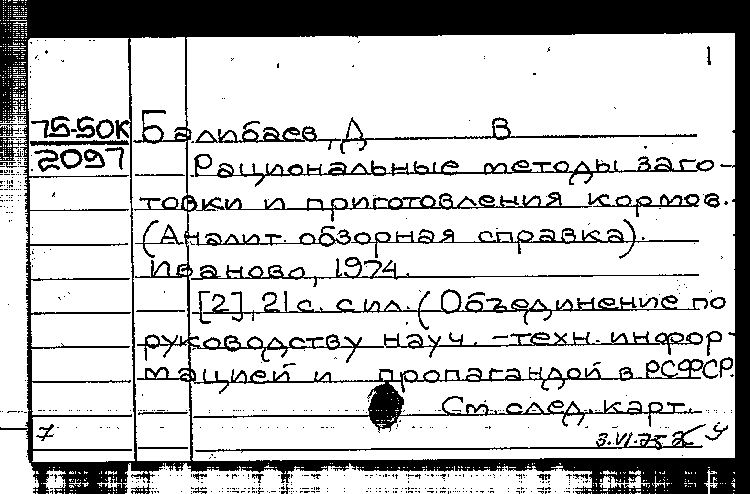 1
75-50К Балибаев, Д В
2097 Рациональные методы заго-
товки и приготовления кормов.
(Аналит. обзорная справка).
Иваново, 1974.
[2], 21 с. с ил. (Объединение по
руководству науч. -техн. инфор-
мацией и пропагандой в РСФСР.
См. след. карт.
7 3.VI.75